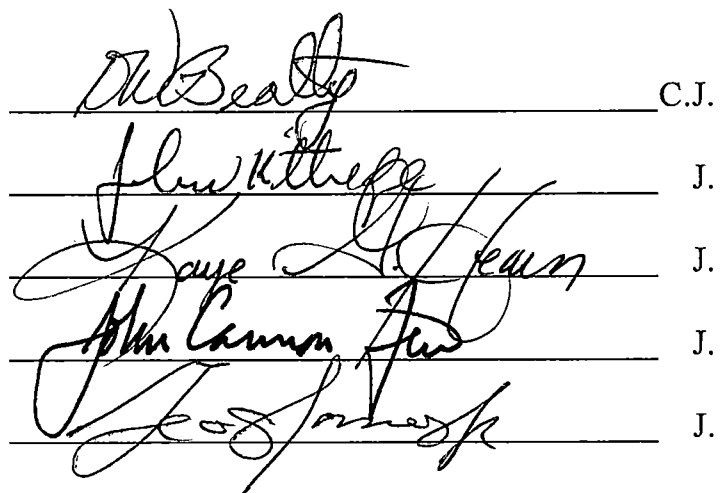 DW Beatty C.J.
John Kittredge J.
Kaye G. Hearn J.
John Cannon Few J.
Geo C James Jr J.